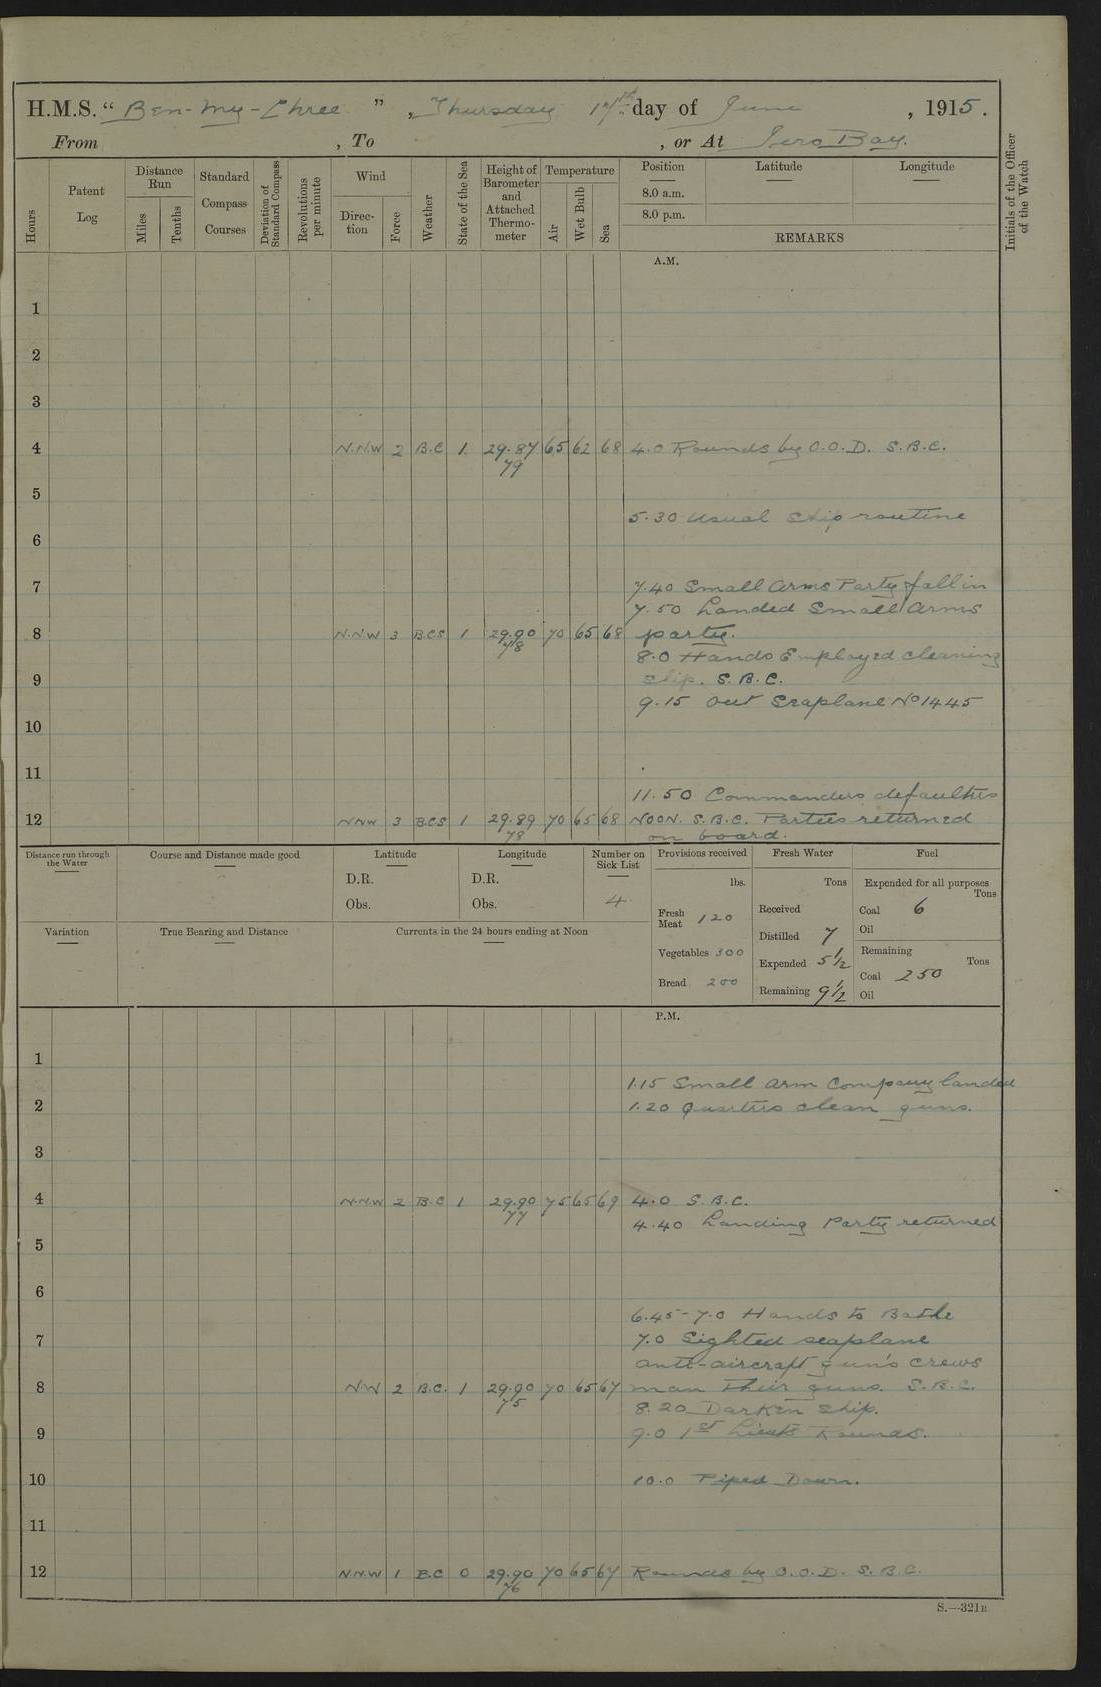 H.M.S. “ Ben-My-Chree ” , Thursday 17th day of June , 1915.
From , To , or At Iero Bay.
Hours
Patent Log
Distance Run
Miles
Tenths
Standard Compass Courses
Deviation of Standard Compass
Revolutions per minute
Wind
Direction
Force
Weather
State of the Sea
Height of Barometer and Attached Thermometer
Temperature
Air
Wet Bulb
Sea
Position
8.0 a.m.
8.0 p.m.
Latitude
Longitude
REMARKS
Initials of the Officer of the Watch
A.M.
1
2
3
4 N.N.W 2 B.C 1 29.87 65 62 68 4.0 Rounds by O.O.D. S.B.C.
79
5
5.30 Usual Ship routine
6
7 7.40 Small Arms Party fall in
7.50 Landed Small Arms
8 N.N.W 3 B.C.S 1 29.90 70 65 68 party.
78
8.0 Hands Employed cleaning
9 Ship. S.B.C.
9.15 Out Seaplane No 1445
10
11
11.50 Commanders defaulters
12 NNW 3 B.C.S 1 29.89 70 65 68 NOON. S.B.C. Parties returned
78 on board.
Distance run through the Water
Course and Distance made good
Latitude
D.R.
Obs.
Longitude
D.R.
Obs.
Number on Sick List
4
Provisions received
lbs.
Fresh Meat 120
Vegetables 300
Bread 200
Fresh Water
Tons
Received
Distilled 7
Expended 5 1/2
Remaining 9 1/2
Fuel
Expended for all purposes
Tons
Coal 6
Oil
Remaining
Tons
Coal 250
Oil
Variation
True Bearing and Distance
Currents in the 24 hours ending at Noon
P.M.
1
1.15 Small arm Company landed
2 1.20 Quarters clean guns.
3
4 N.N.W 2 B.C 1 29.90 75 65 69 4.0 S.B.C.
77
4.40 Landing Party returned
5
6
6.45-7.0 Hands to Bathe
7 7.0 Sighted seaplane
anti-aircraft gun's crews
8 NW 2 B.C. 1 29.90 70 65 67 man their guns. S.B.C.
75
8.20 Darken Ship.
9 9.0 1st Lieuts Rounds.
10 10.0 Piped Down.
11
12 N.N.W 1 B.C 0 29.90 70 65 67 Rounds by O.O.D. S.B.C.
76
S.—321B